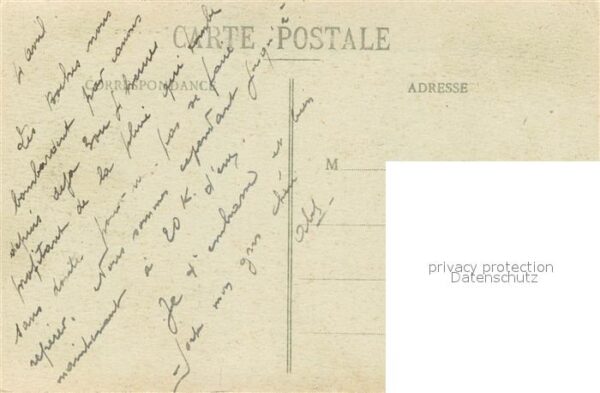 CARTE POSTALE
CORRESPONDANCE
ADRESSE
M
4 avril
Les boches nous
bombardent par canons
depuis deja 3 ou 4 heures
profitant de la pluie qui tombe
sans doute pour ne pas se faire
repérer. Nous sommes cependant jusqu'à
maintenant à 20 K. d'eux.
Je t'embrasse et bien
fort mon gros chéri
privacy protection
Datenschutz